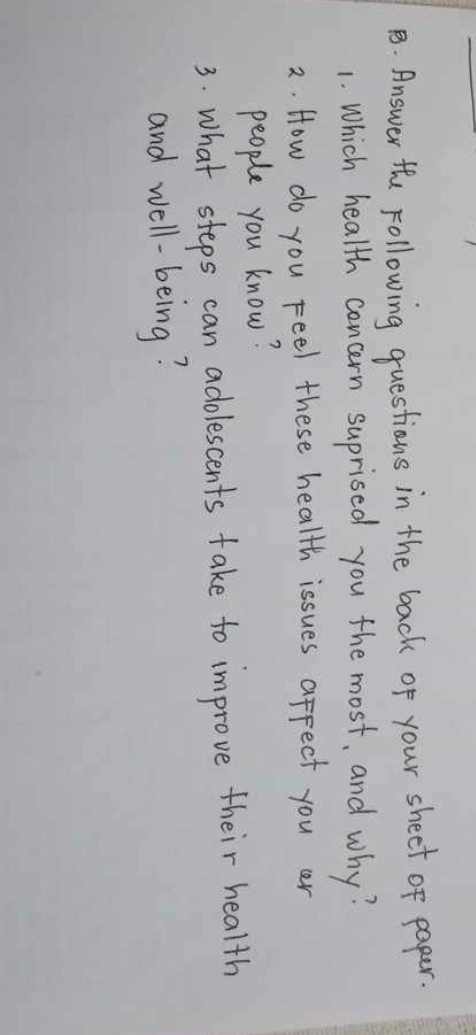 B. Answer the Following questions in the back of your sheet of paper.
1. Which health concern suprised you the most, and why?
2. How do you Feel these health issues affect you or
people you know?
3. What steps can adolescents take to improve their health
and well-being?